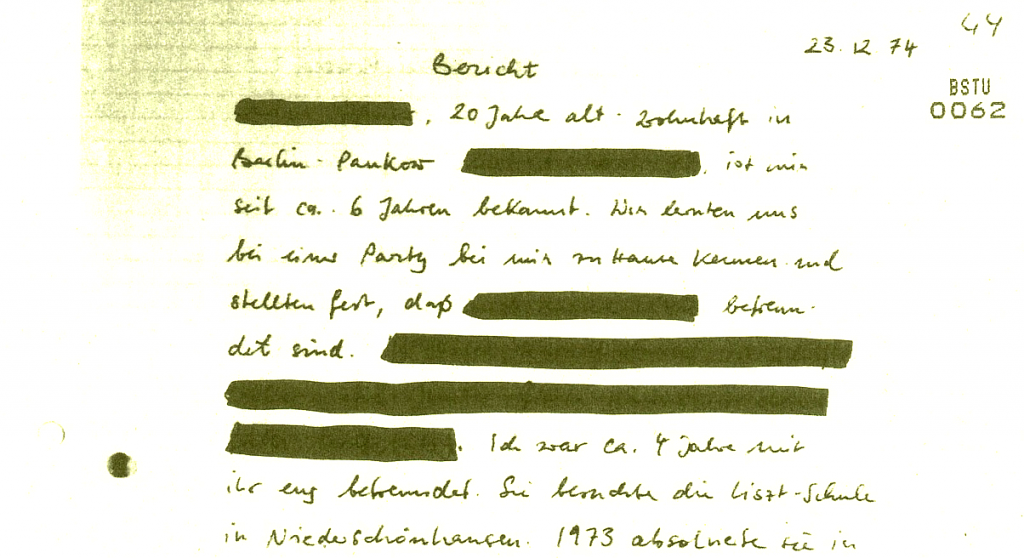 44
23. 12 74
Bericht
BSTU
0062
, 20 Jahre alt - wohnhaft in
Berlin - Pankow , ist mir
seit ca. 6 Jahren bekannt. Wir lernten uns
bei einer Party bei mir zu Hause kennen und
stellten fest, daß befreun-
det sind.
. Ich war ca. 4 Jahre mit
ihr eng befreundet. Sie besuchte die Liszt-Schule
in Niederschönhausen. 1973 absolvierte sie in